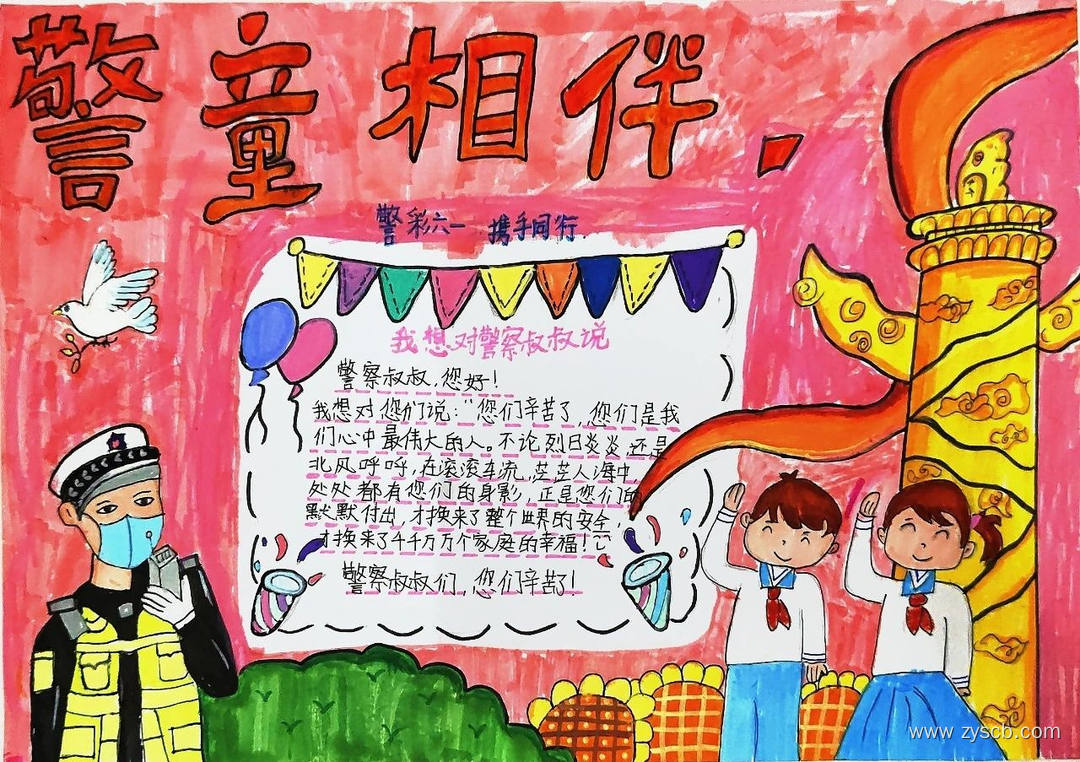 警童相伴
警彩六一 携手同行.
我想对警察叔叔说
警察叔叔,您好!
我想对您们说:“您们辛苦了,您们是我
们心中最伟大的人。不论烈日炎炎还是
北风呼呼,在滚滚车流,茫茫人海中,
处处都有您们的身影,正是您们的
默默付出,才换来了整个世界的安全,
才换来了千千万万个家庭的幸福!
警察叔叔们,您们辛苦了!
www.zyscb.com